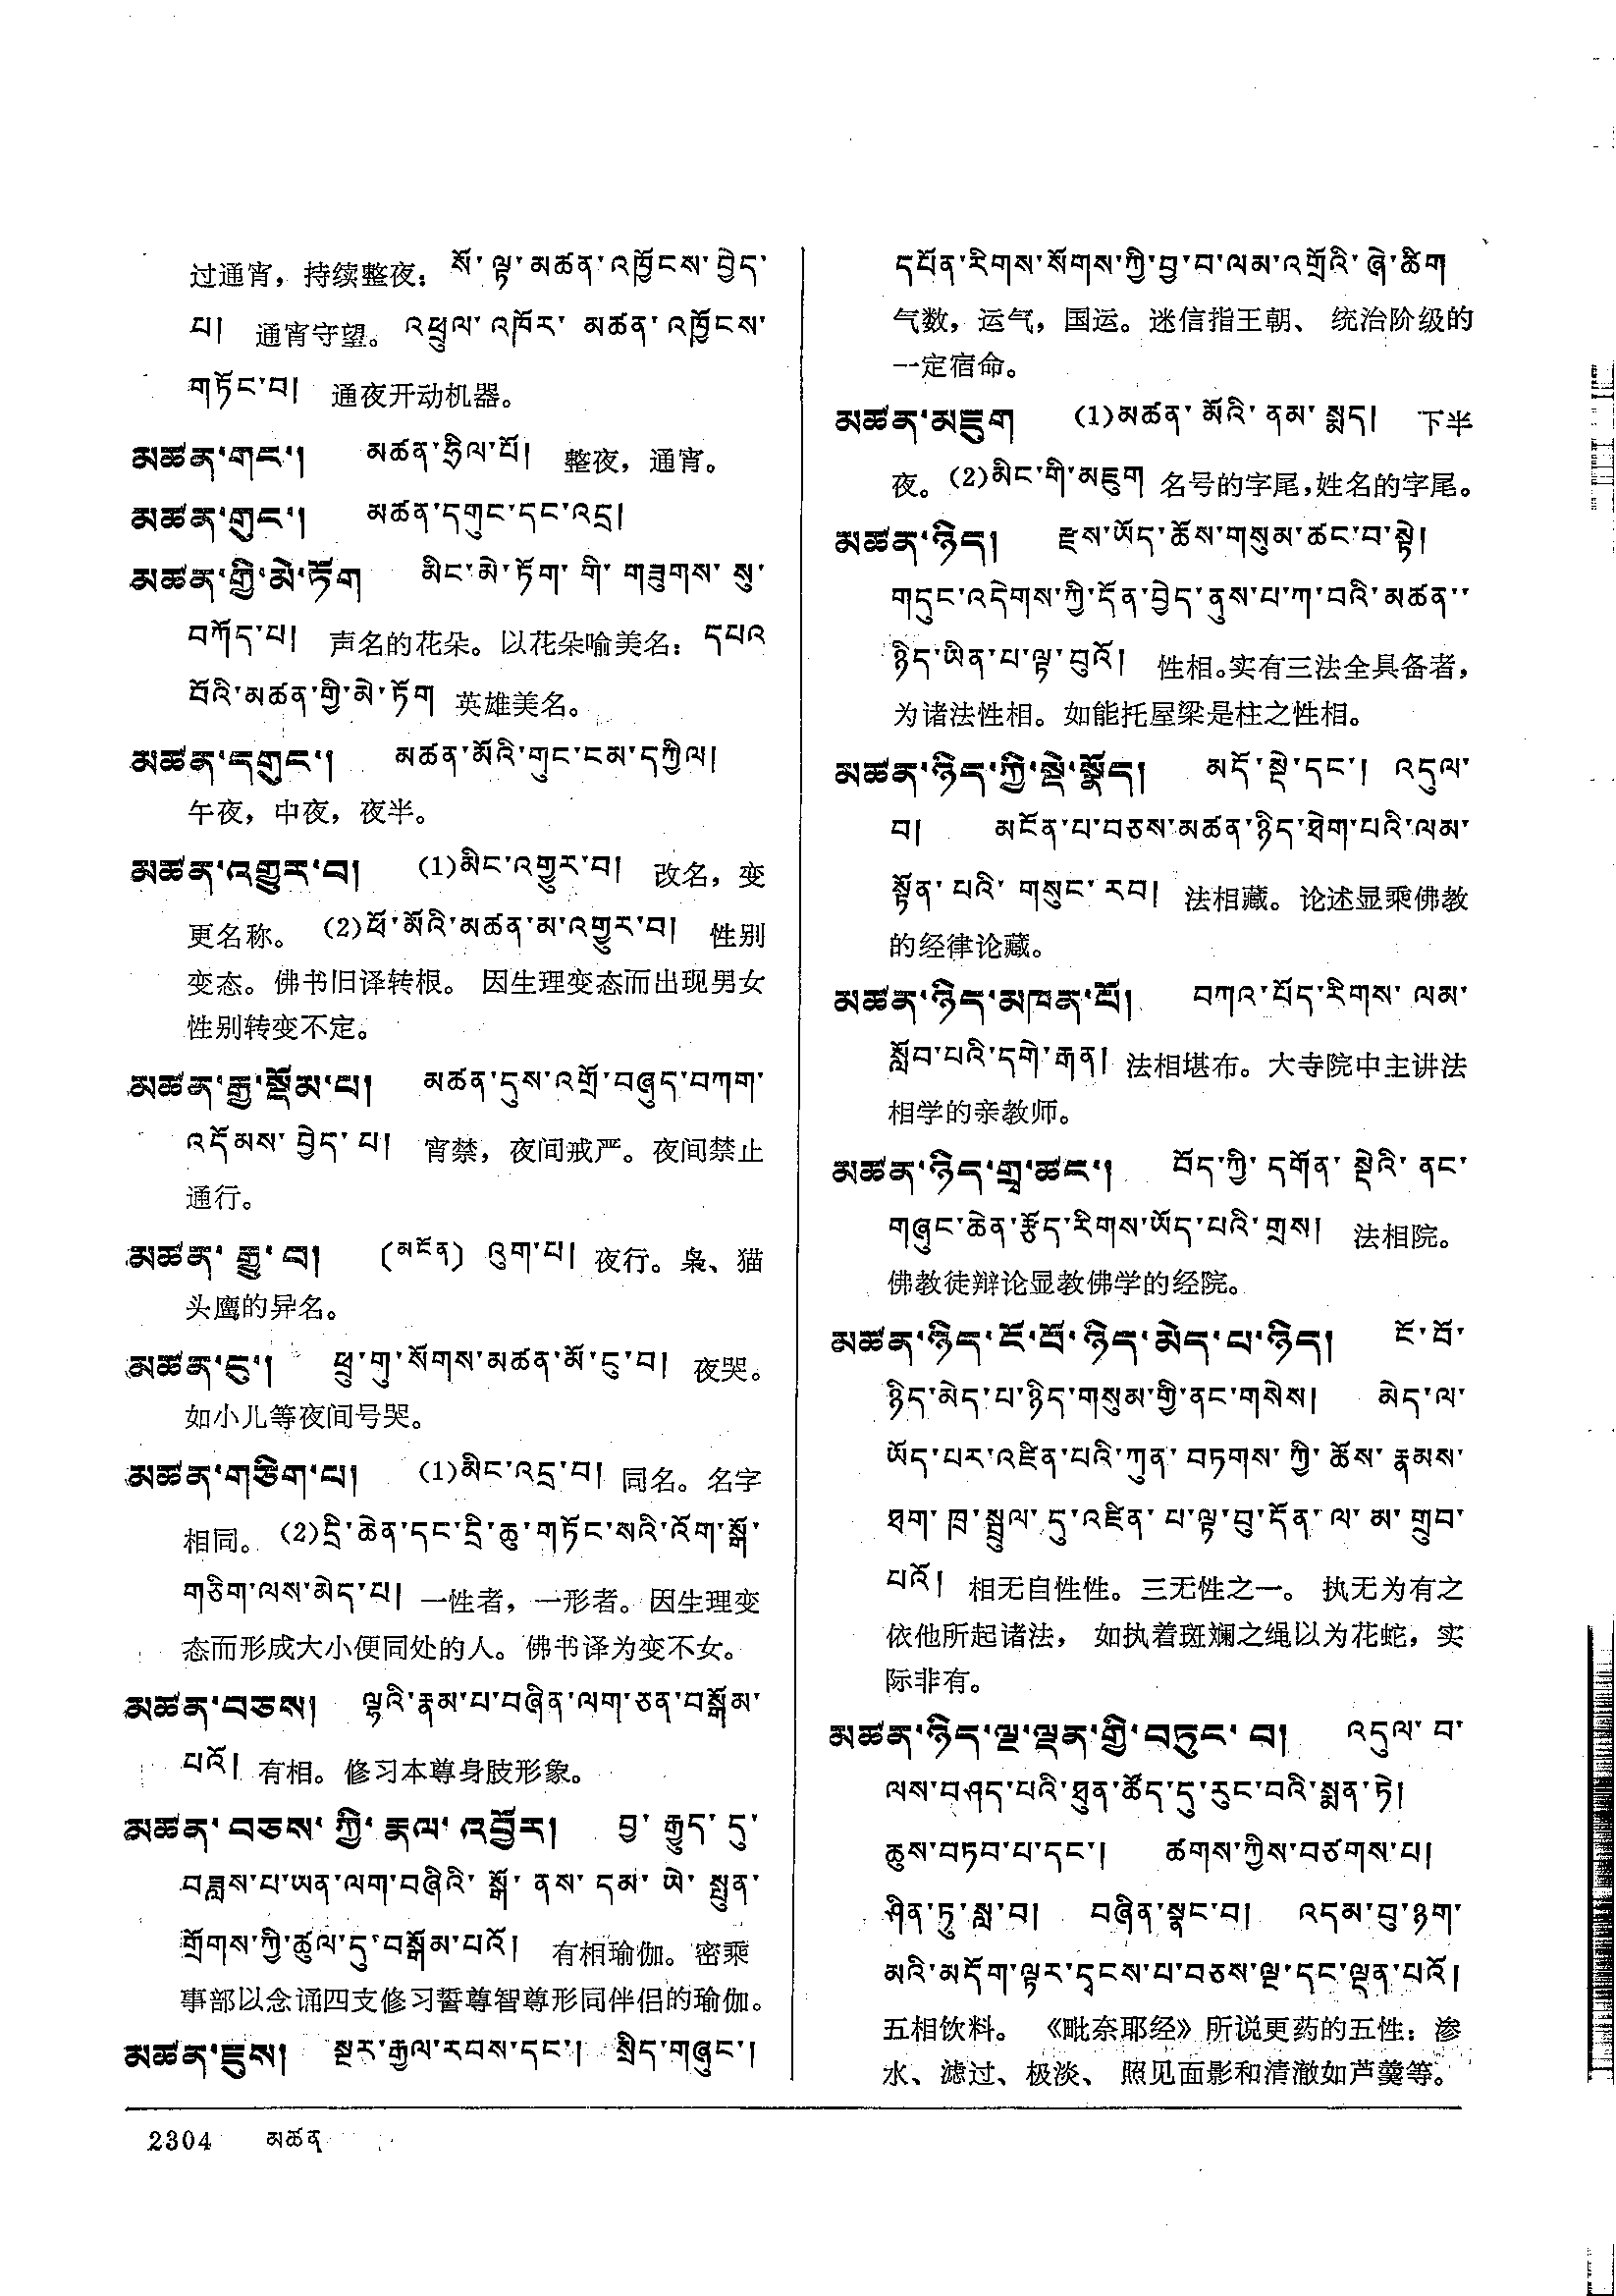 过通宵，持续整夜：སོ་ལྟ་མཚན་འཁྱོངས་བྱེད་
པ། 通宵守望。འཕྲུལ་འཁོར་མཚན་འཁྱོངས་
གཏོང་བ། 通夜开动机器。
མཚན་གང་། མཚན་ཧྲིལ་པོ། 整夜，通宵。
མཚན་གུང་། མཚན་དགུང་དང་འདྲ།
མཚན་གྱི་མེ་ཏོག མིང་མེ་ཏོག་གི་གཟུགས་སུ་
བཀོད་པ། 声名的花朵。以花朵喻美名：དཔའ
བོའི་མཚན་གྱི་མེ་ཏོག 英雄美名。
མཚན་དགུང་། མཚན་མོའི་གུང་ངམ་དཀྱིལ།
午夜，中夜，夜半。
མཚན་འགྱུར་བ། (1)མིང་འགྱུར་བ། 改名，变
更名称。(2)ཕོ་མོའི་མཚན་མ་འགྱུར་བ། 性别
变态。佛书旧译转根。因生理变态而出现男女
性别转变不定。
མཚན་རྒྱ་སྡོམ་པ། མཚན་དུས་འགྲོ་བཞུད་བཀག་
འདོམས་བྱེད་པ། 宵禁，夜间戒严。夜间禁止
通行。
མཚན་རྒྱུ་བ། (མངོན) འུག་པ། 夜行。枭、猫
头鹰的异名。
མཚན་ངུ་། ཕྲུ་གུ་སོགས་མཚན་མོ་ངུ་བ། 夜哭。
如小儿等夜间号哭。
མཚན་གཅིག་པ། (1)མིང་འདྲ་བ། 同名。名字
相同。(2)དྲི་ཆེན་དང་དྲི་ཆུ་གཏོང་སའི་འོག་སྒོ་
གཅིག་ལས་མེད་པ། 一性者，一形者。因生理变
态而形成大小便同处的人。佛书译为变不女。
མཚན་བཅས། ལྷའི་རྣམ་པ་བཞིན་ལག་ཅན་བསྒོམ་
པའོ། 有相。修习本尊身肢形象。
མཚན་བཅས་ཀྱི་རྣལ་འབྱོར། བྱ་རྒྱུད་དུ་
བཟླས་པ་ཡན་ལག་བཞིའི་སྒོ་ནས་དམ་ཡེ་སྤུན་
གྲོགས་ཀྱི་ཚུལ་དུ་བསྒོམ་པའོ། 有相瑜伽。密乘
事部以念诵四支修习誓尊智尊形同伴侣的瑜伽。
མཚན་ཇུས། སྔར་རྒྱལ་རབས་དང་། སྲིད་གཞུང་།
དཔོན་རིགས་སོགས་ཀྱི་བྱ་བ་ལམ་འགྲོའི་ཞེ་ཚིག
气数，运气，国运。迷信指王朝、统治阶级的
一定宿命。
མཚན་མཇུག (1)མཚན་མོའི་ནམ་སྨད། 下半
夜。(2)མིང་གི་མཇུག 名号的字尾,姓名的字尾。
མཚན་ཉིད། རྫས་ཡོད་ཆོས་གསུམ་ཚང་བ་སྟེ།
གདུང་འདེགས་ཀྱི་དོན་བྱེད་ནུས་པ་ཀ་བའི་མཚན་
ཉིད་ཡིན་པ་ལྟ་བུའོ། 性相。实有三法全具备者，
为诸法性相。如能托屋梁是柱之性相。
མཚན་ཉིད་ཀྱི་སྡེ་སྣོད། མདོ་སྡེ་དང་། འདུལ་
བ། མངོན་པ་བཅས་མཚན་ཉིད་ཐེག་པའི་ལམ་
སྟོན་པའི་གསུང་རབ། 法相藏。论述显乘佛教
的经律论藏。
མཚན་ཉིད་མཁན་པོ། བཀའ་པོད་རིགས་ལམ་
སློབ་པའི་དགེ་རྒན། 法相堪布。大寺院中主讲法
相学的亲教师。
མཚན་ཉིད་གྲྭ་ཚང་། བོད་ཀྱི་དགོན་སྡེའི་ནང་
གཞུང་ཆེན་རྩོད་རིགས་ཡོད་པའི་གྲས། 法相院。
佛教徒辩论显教佛学的经院。
མཚན་ཉིད་ངོ་བོ་ཉིད་མེད་པ་ཉིད། ངོ་བོ་
ཉིད་མེད་པ་ཉིད་གསུམ་གྱི་ནང་གསེས། མེད་ལ་
ཡོད་པར་འཛིན་པའི་ཀུན་བཏགས་ཀྱི་ཆོས་རྣམས་
ཐག་ཁྲ་སྦྲུལ་དུ་འཛིན་པ་ལྟ་བུ་དོན་ལ་མ་གྲུབ་
པའོ། 相无自性性。三无性之一。执无为有之
依他所起诸法，如执着斑斓之绳以为花蛇，实
际非有。
མཚན་ཉིད་ལྔ་ལྡན་གྱི་བཏུང་བ། འདུལ་བ་
ལས་བཤད་པའི་ཐུན་ཚོད་དུ་རུང་བའི་སྨན་ཏེ།
ཆུས་བཏབ་པ་དང་། ཚགས་ཀྱིས་བཙགས་པ།
ཤིན་ཏུ་སླ་བ། བཞིན་སྣང་བ། འདམ་བུ་ཉག་
མའི་མདོག་ལྟར་དྭངས་པ་བཅས་ལྔ་དང་ལྡན་པའོ།
五相饮料。《毗奈耶经》所说更药的五性：渗
水、滤过、极淡、照见面影和清澈如芦羹等。
2304 མཚན